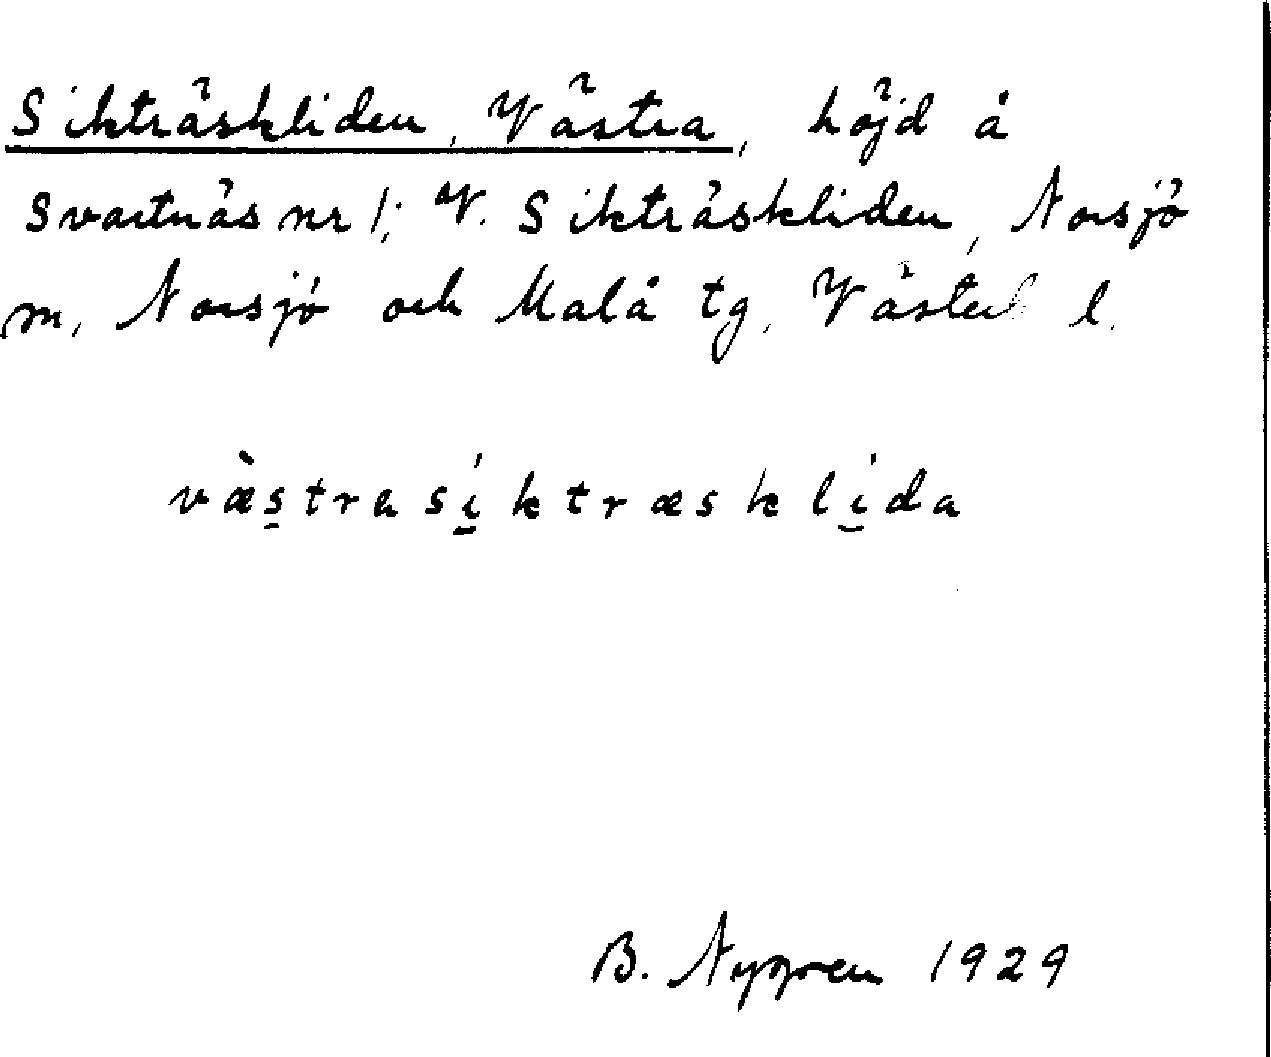 Sikträskliden, Västra, höjd å
Svartnäs nr 1; V. Sikträskliden, Norsjö
m, Norsjö och Malå tg, Västerb l.
væ̀stra síktræsklída
B. Nygren 1929